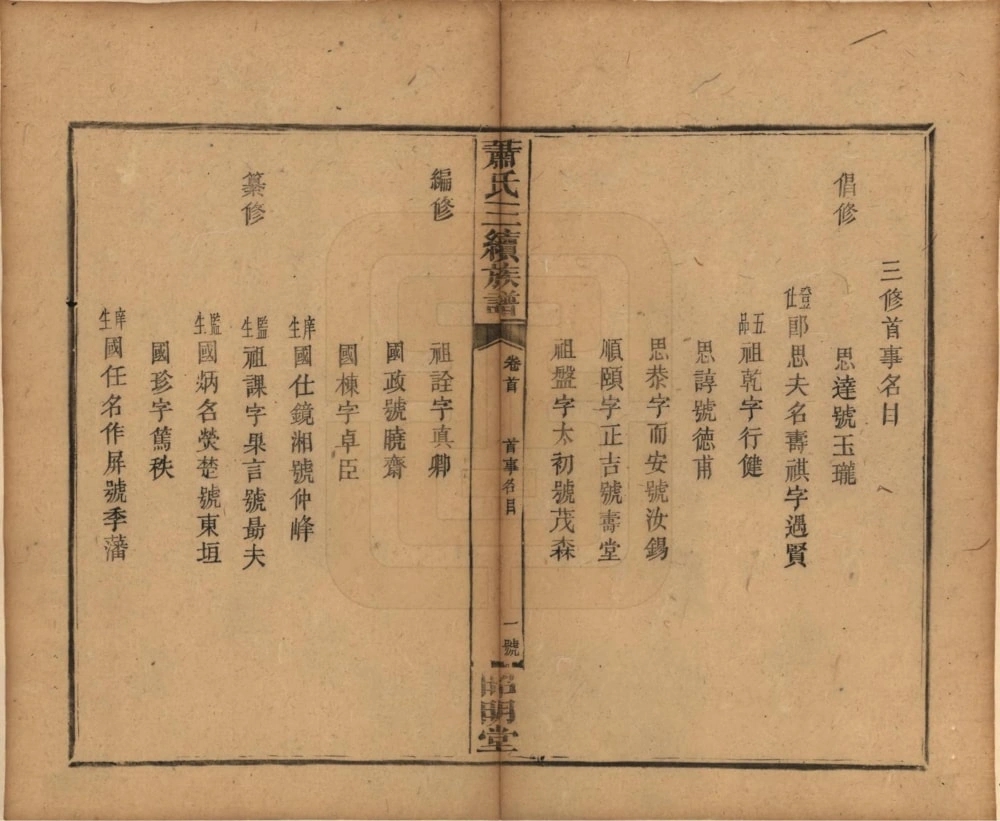 三修首事名目
倡修
思達號玉瓏
登仕郎思夫名壽祺字遇賢
五品祖乾字行健
思諄號德甫
思恭字而安號汝錫
順頤字正吉號壽堂
祖盤字太初號茂森
蕭氏三續族譜
卷首
首事名目
一號
昭明堂
編修
祖詮字真卿
國政號曉齋
國棟字卓臣
庠生國仕鏡湘號仲峰
纂修
監生祖課字果言號勗夫
監生國炳名熒楚號東垣
國珍字篤秩
庠生國任名作屏號季藩